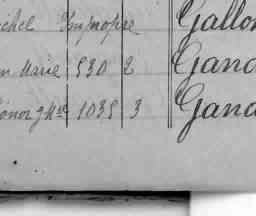 chel Impropre Gallon
n Marie 530 2 Gand
onor g Me 1035 3 Gand